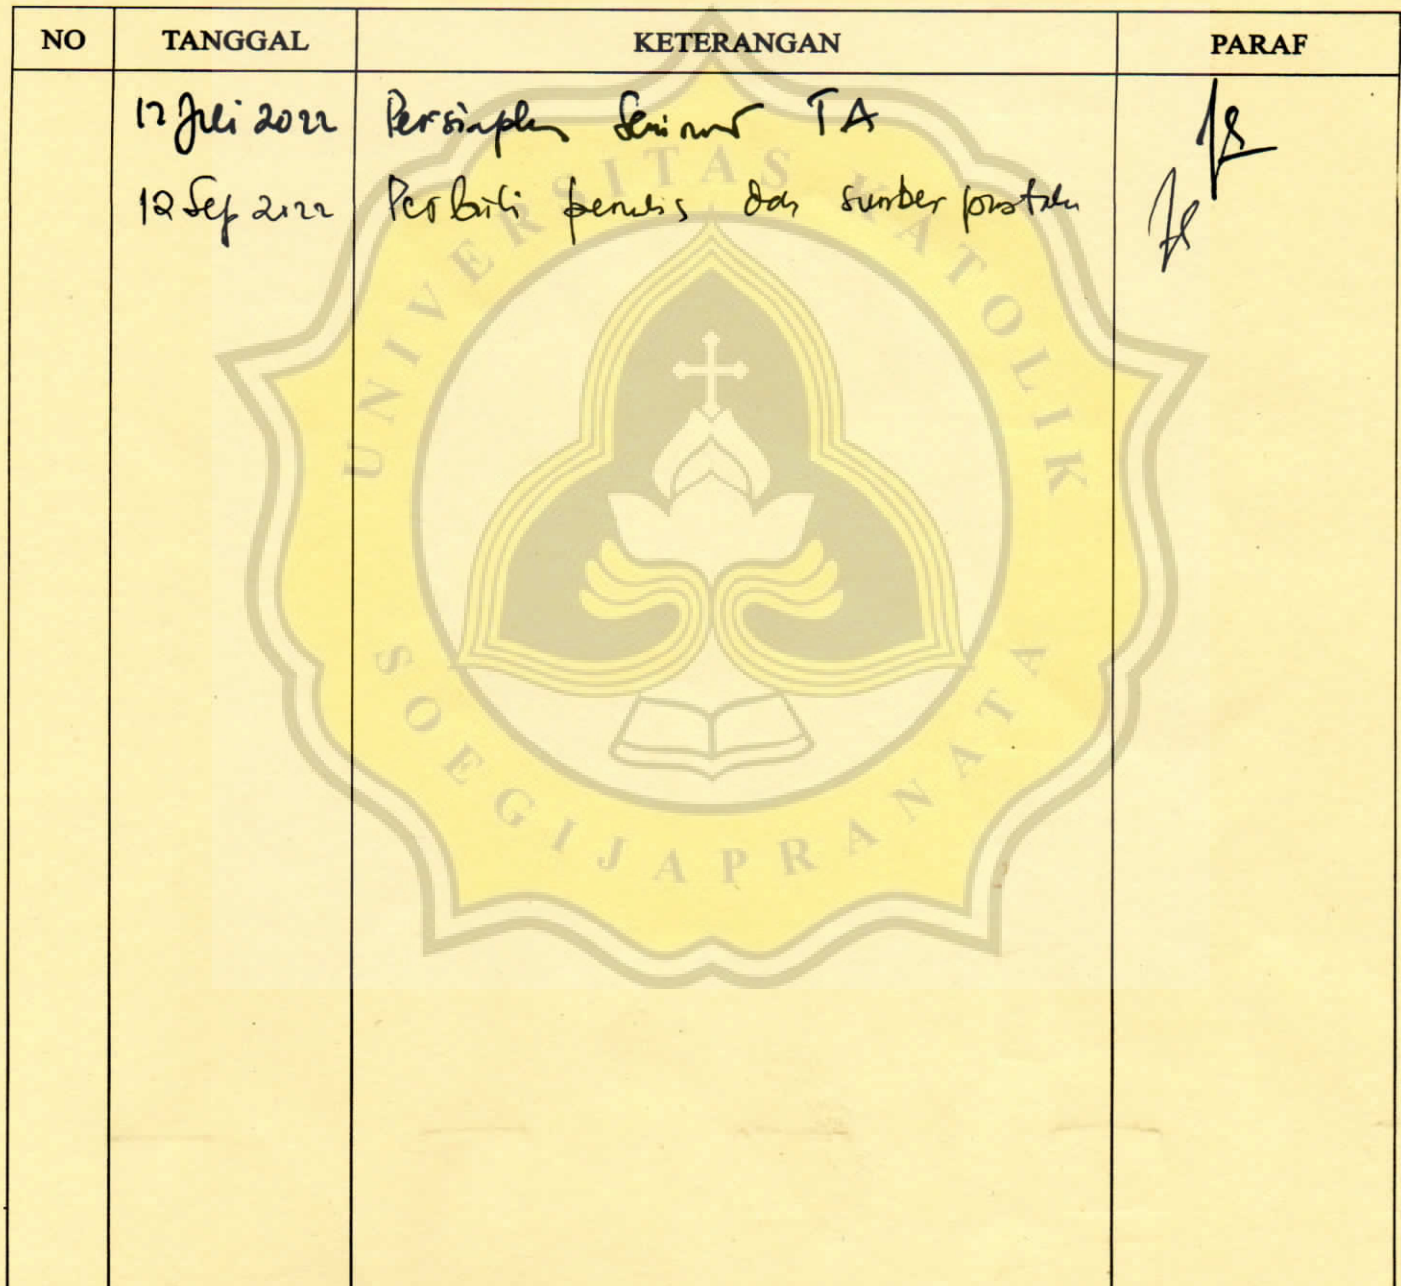 NO TANGGAL KETERANGAN PARAF
12 Juli 2022 Persiapkan Seminar TA
12 Sep 2022 Perbaiki penulis dan sumber pustaka
UNIVERSITAS KATOLIK
SOEGIJAPRANATA